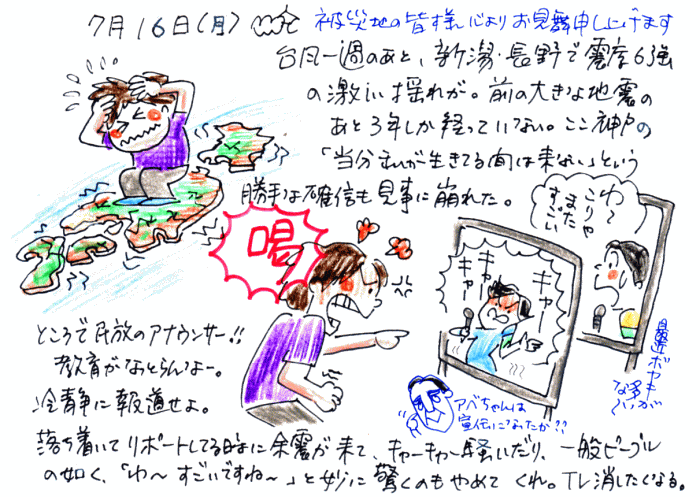 7月16日(月)
被災地の皆様 心よりお見舞申し上げます
台風一過のあと、新潟・長野で震度6強
の激しい揺れが。前の大きな地震の
あと3年しか経っていない。ここ神戸の
「当分まいが生きてる間は来ない」という
勝手な確信も見事に崩れた。
喝
わ〜
こりゃ
また
すごい
キャー
キャー
キャー
ところで民放のアナウンサー!!
教育がなっとらんよー。
冷静に報道せよ。
アベちゃんは
宣伝になったか??
最近ボヤキ
が
多い
な
落ち着いてリポートしてる時に余震が来て、キャーキャー騒いだり、一般ピープル
の如く、「わ〜すごいですね〜」と妙に驚くのもやめてくれ。TV消したくなる。